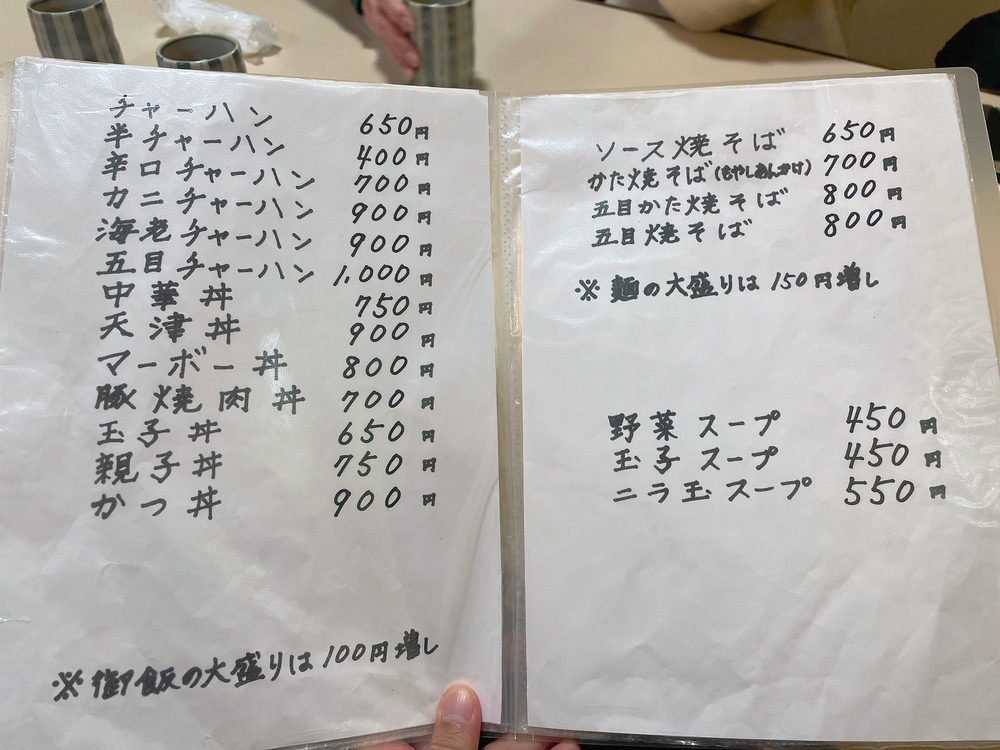 チャーハン 650円
半チャーハン 400円
辛口チャーハン 700円
カニチャーハン 900円
海老チャーハン 900円
五目チャーハン 1,000円
中華丼 750円
天津丼 900円
マーボー丼 800円
豚焼肉丼 700円
玉子丼 650円
親子丼 750円
かつ丼 900円
※御飯の大盛りは100円増し
ソース焼そば 650円
かた焼そば(もやしあんかけ) 700円
五目かた焼そば 800円
五目焼そば 800円
※麺の大盛りは150円増し
野菜スープ 450円
玉子スープ 450円
ニラ玉スープ 550円